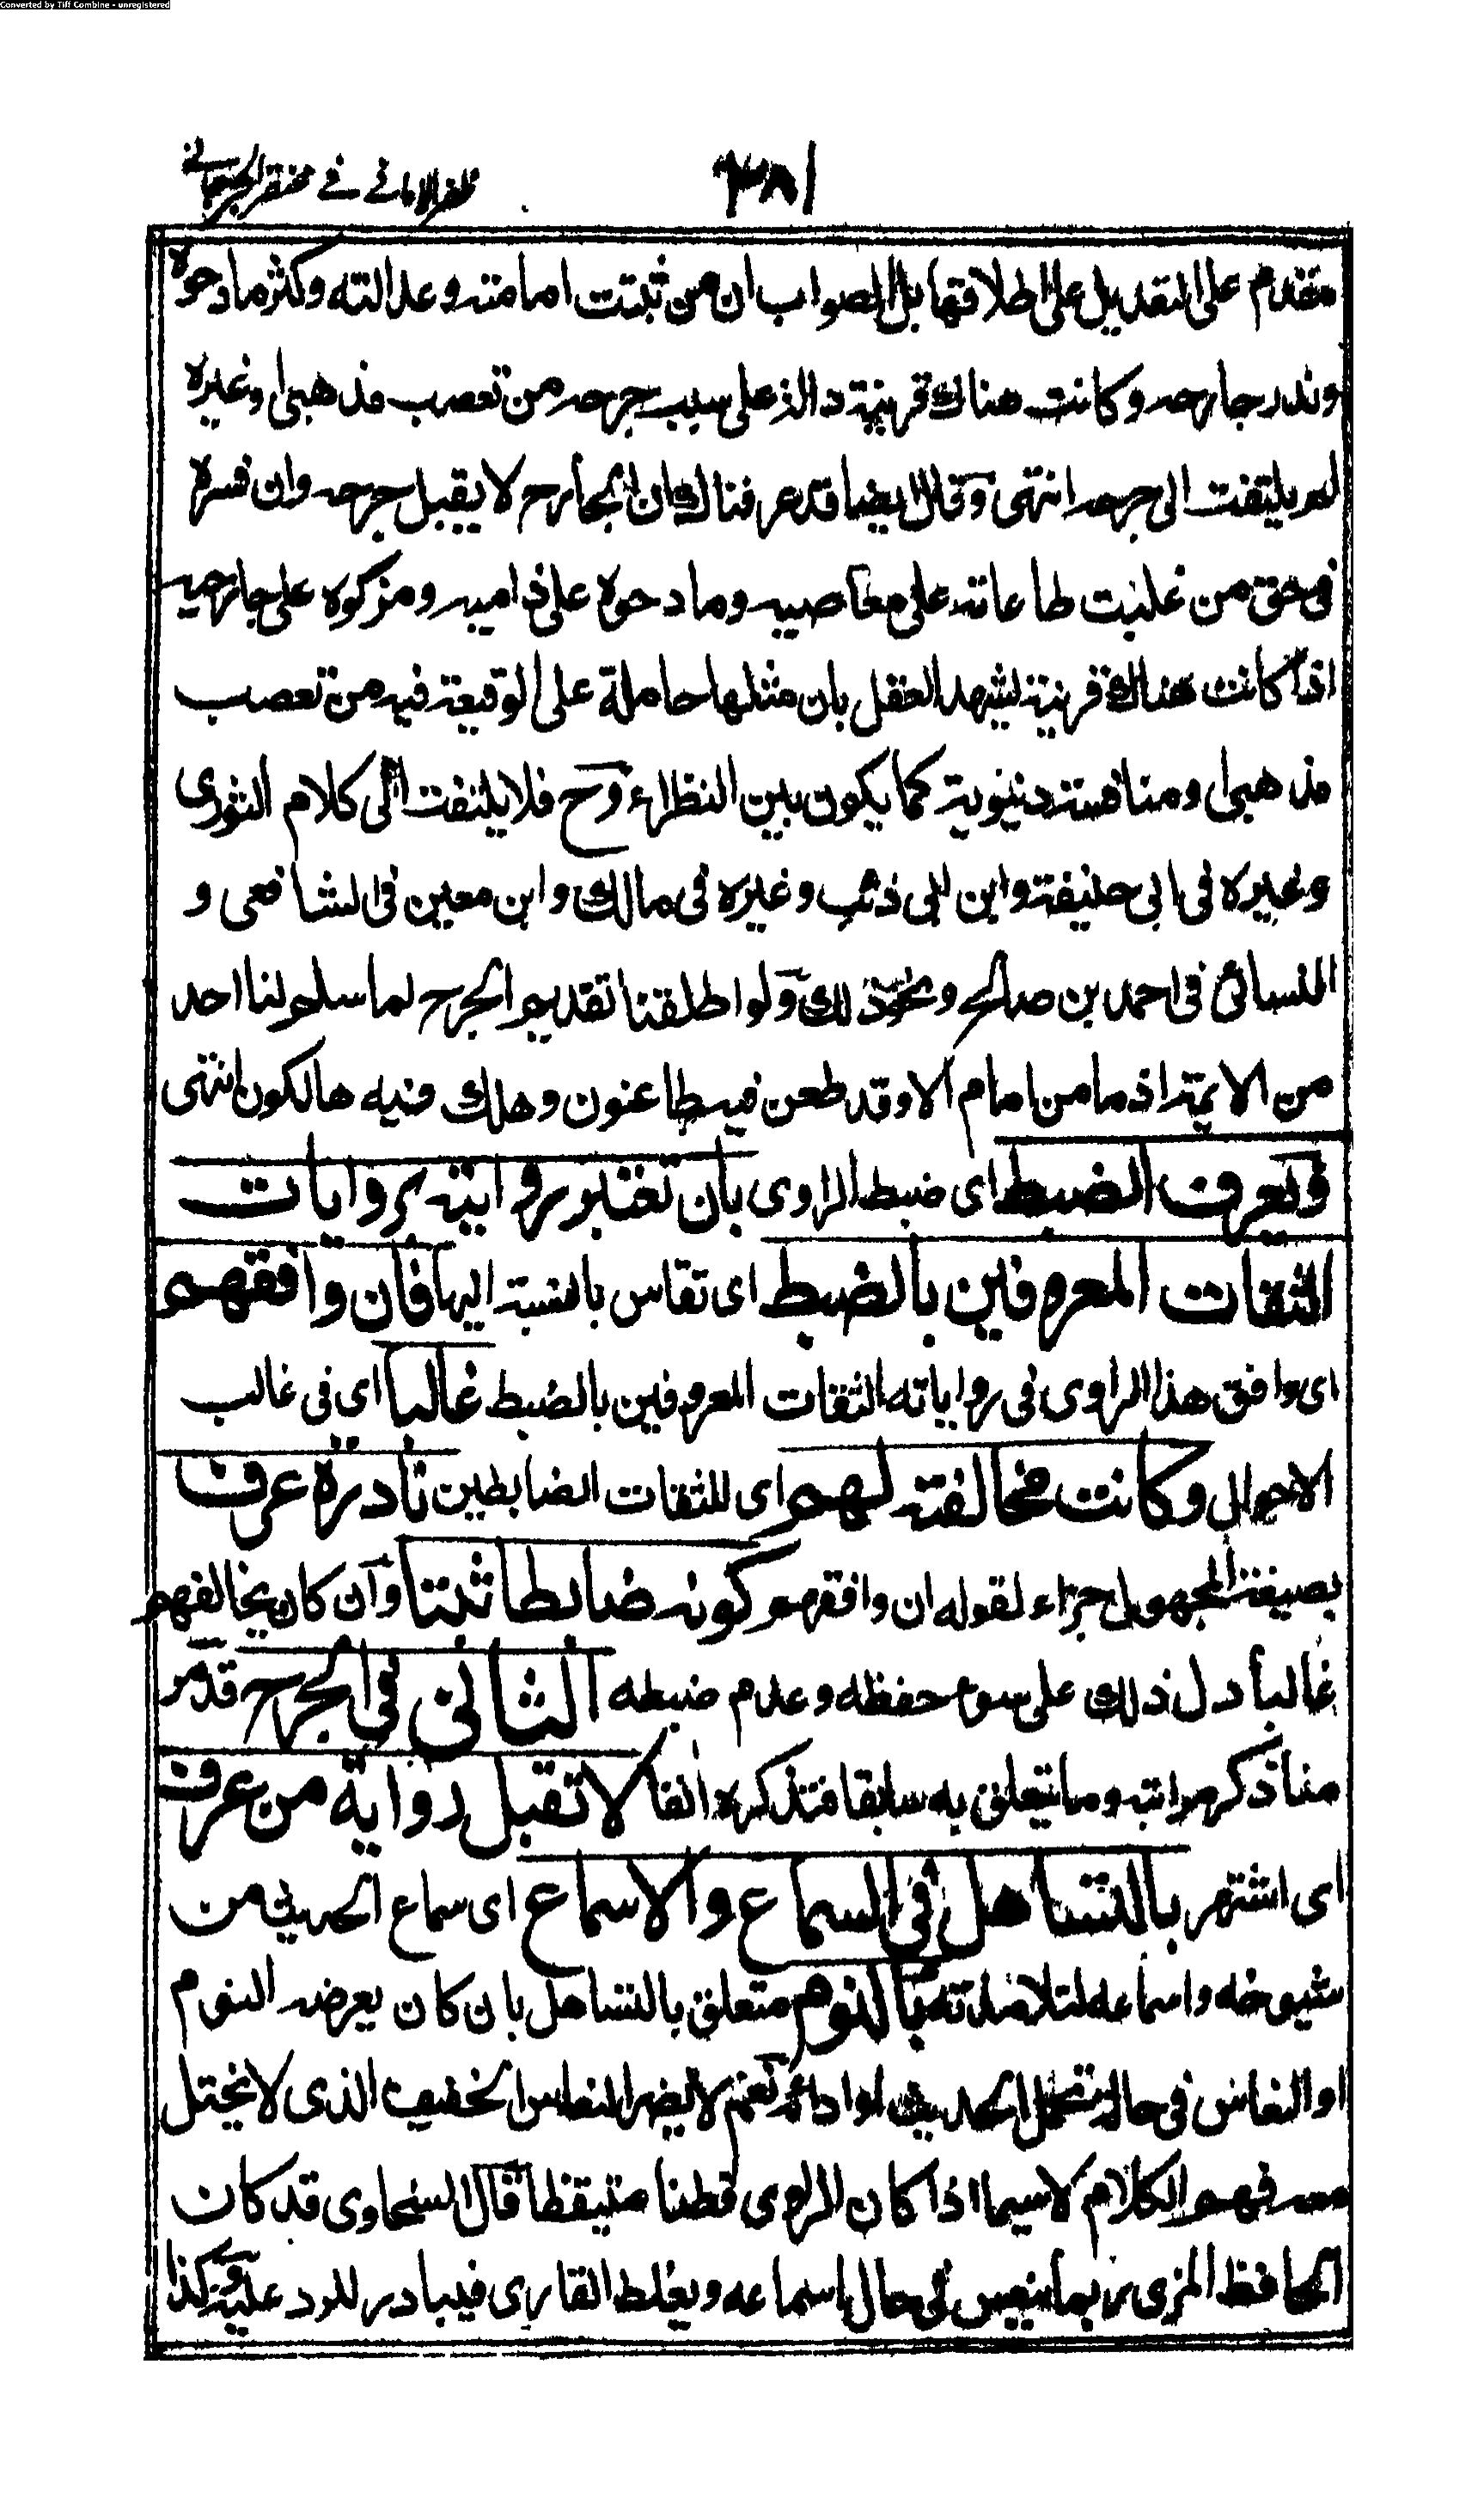 Converted by Tiff Combine - unregistered
٤٨١
ظفر الامانى فى مختصر الجرجانى
مقدم على التعديل على اطلاقها بل الصواب ان من ثبتت امامته وعدالته وكثر مادحوه
وندر جارحه وكانت هناك قرينة دالة على سبب جرحه من تعصب مذهبى او غيره
لم يلتفت الى جرحه انتهى وقال ايضا قد عرفناك ان الجارح لا يقبل جرحه وان فسره
فى حق من غلبت طاعاته على معاصيه ومادحوه على ذاميه ومزكوه على جارحيه
اذا كانت هناك قرينة يشهد العقل بان مثلها حاملة على الوقيعة فيه من تعصب
مذهبى او منافسة دنيوية كما يكون بين النظراء وح فلا يلتفت الى كلام الثورى
وغيره فى ابى حنيفة وابن ابى ذئب وغيره فى مالك وابن معين فى الشافعى و
النسائى فى احمد بن صالح ونحو ذلك ولو اطلقنا تقديم الجرح لما سلم لنا احد
من الائمة اذ ما من امام الا وقد طعن فيه طاعنون وهلك فيه هالكون انتهى
ويعرف الضبط اى ضبط الراوى بان تعتبر روايته بروايات
الثقات المعروفين بالضبط اى تقاس بالنسبة اليها فان وافقهم
اى وافق هذا الراوى فى رواياته الثقات المعروفين بالضبط غالبا اى فى غالب
الاحوال وكانت مخالفته لهم اى للثقات الضابطين نادرة عرف
بصيغة المجهول جزاء لقوله ان وافقهم كونه ضابطا ثبتا وان كان يخالفهم
غالبا دل ذلك على سوء حفظه وعدم ضبطه الثانى فى الجرح قد مر
منا ذكر مراتبه وما يتعلق به سابقا فتذكره انفا لا تقبل رواية من عرف
اى اشتهر بالتساهل فى السماع والاسماع اى سماع الحديث من
شيوخه واسماعه لتلامذته بالنوم متعلق بالتساهل بان كان يعرضه النوم
او النعاس فى حالة تحمل الحديث او ادائه نعم لا يضر النعاس الخفيف الذى لا يختل
معه فهم الكلام لا سيما اذا كان الراوى فطنا متيقظا قال السخاوى قد كان
الحافظ المزى ربما ينعس فى حال اسماعه ويغلط القارى فيبادر للرد عليه وكذا